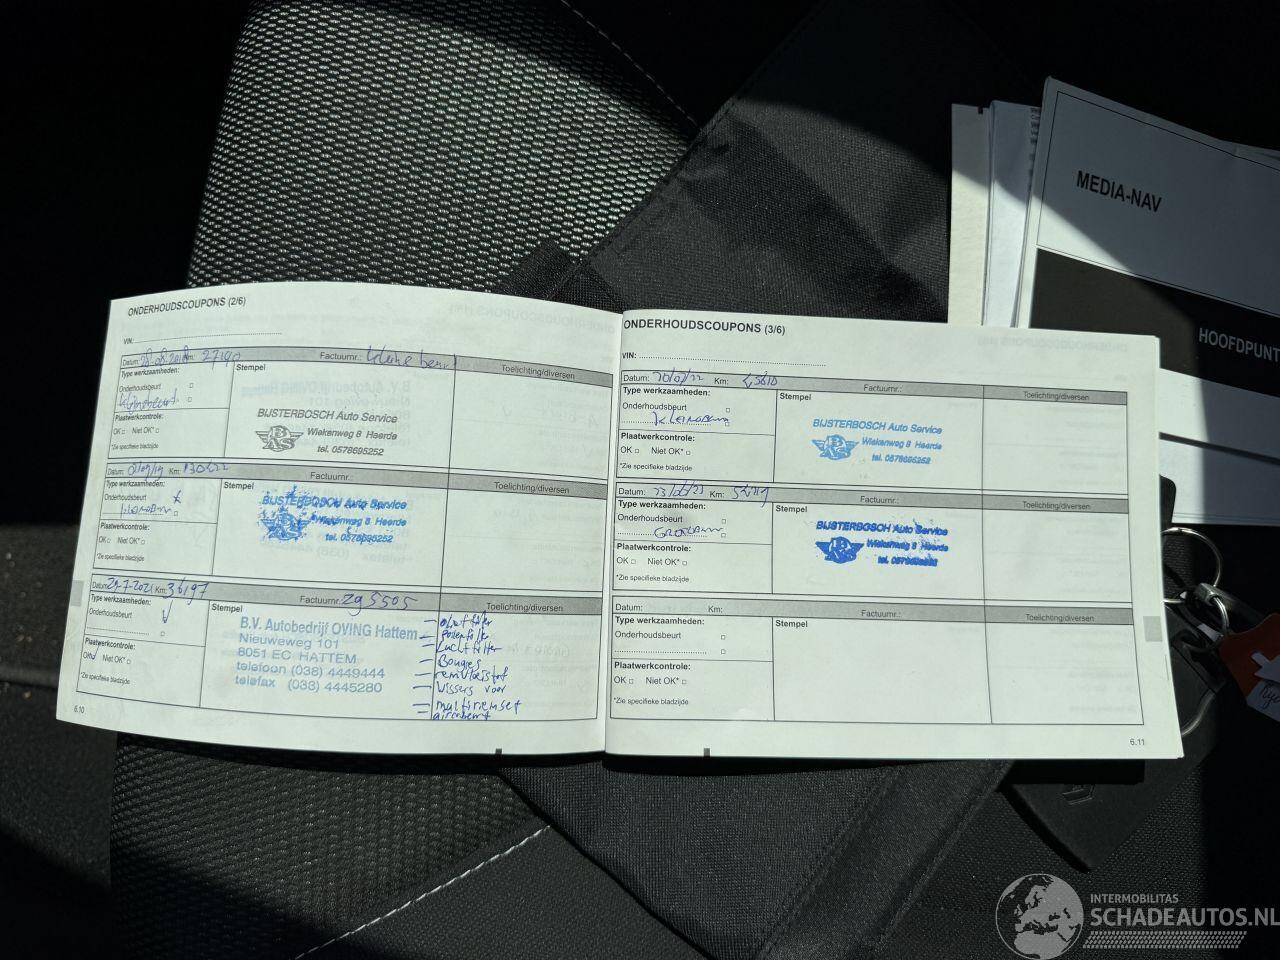 ONDERHOUDSCOUPONS (2/6)
VIN:
Datum: 28.08.2018 Km: Factuurnr.: kleine beurt
Type werkzaamheden:
Stempel
Toelichting/diversen
Onderhoudsbeurt
BIJSTERBOSCH Auto Service
Plaatwerkcontrole:
Wiekenweg 8 Heerde
OK Niet OK*
BAS
tel. 0578695252
*Zie specifieke bladzijde
Datum: Km:
Factuurnr.:
Type werkzaamheden:
Stempel
Toelichting/diversen
Onderhoudsbeurt x
BIJSTERBOSCH Auto Service
Wiekenweg 8 Heerde
Plaatwerkcontrole:
tel. 0578695252
OK Niet OK*
*Zie specifieke bladzijde
Datum: 29-7-2021 Km: 36197 Factuurnr.: 295505
Type werkzaamheden:
Stempel
Toelichting/diversen
Onderhoudsbeurt V
B.V. Autobedrijf OVING Hattem
Nieuweweg 101
8051 EC HATTEM
telefoon (038) 4449444
telefax (038) 4445280
Plaatwerkcontrole:
OK Niet OK*
*Zie specifieke bladzijde
- oliefilter
- pollenfilter
- Luchtfilter
- Bougies
- remvloeistof
- wissers voor
- multiriemset
6.10
ONDERHOUDSCOUPONS (3/6)
VIN:
Datum: Km:
Factuurnr.:
Type werkzaamheden:
Stempel
Toelichting/diversen
Onderhoudsbeurt
BIJSTERBOSCH Auto Service
Plaatwerkcontrole:
Wiekenweg 8 Heerde
OK Niet OK*
tel. 0578695252
*Zie specifieke bladzijde
Datum: Km:
Factuurnr.:
Type werkzaamheden:
Stempel
Toelichting/diversen
Onderhoudsbeurt
BIJSTERBOSCH Auto Service
Plaatwerkcontrole:
Wiekenweg 8 Heerde
OK Niet OK*
tel. 0578695252
*Zie specifieke bladzijde
Datum: Km:
Factuurnr.:
Type werkzaamheden:
Stempel
Toelichting/diversen
Onderhoudsbeurt
Plaatwerkcontrole:
OK Niet OK*
*Zie specifieke bladzijde
6.11
MEDIA-NAV
HOOFDPUNT
INTERMOBILITAS
SCHADEAUTOS.NL